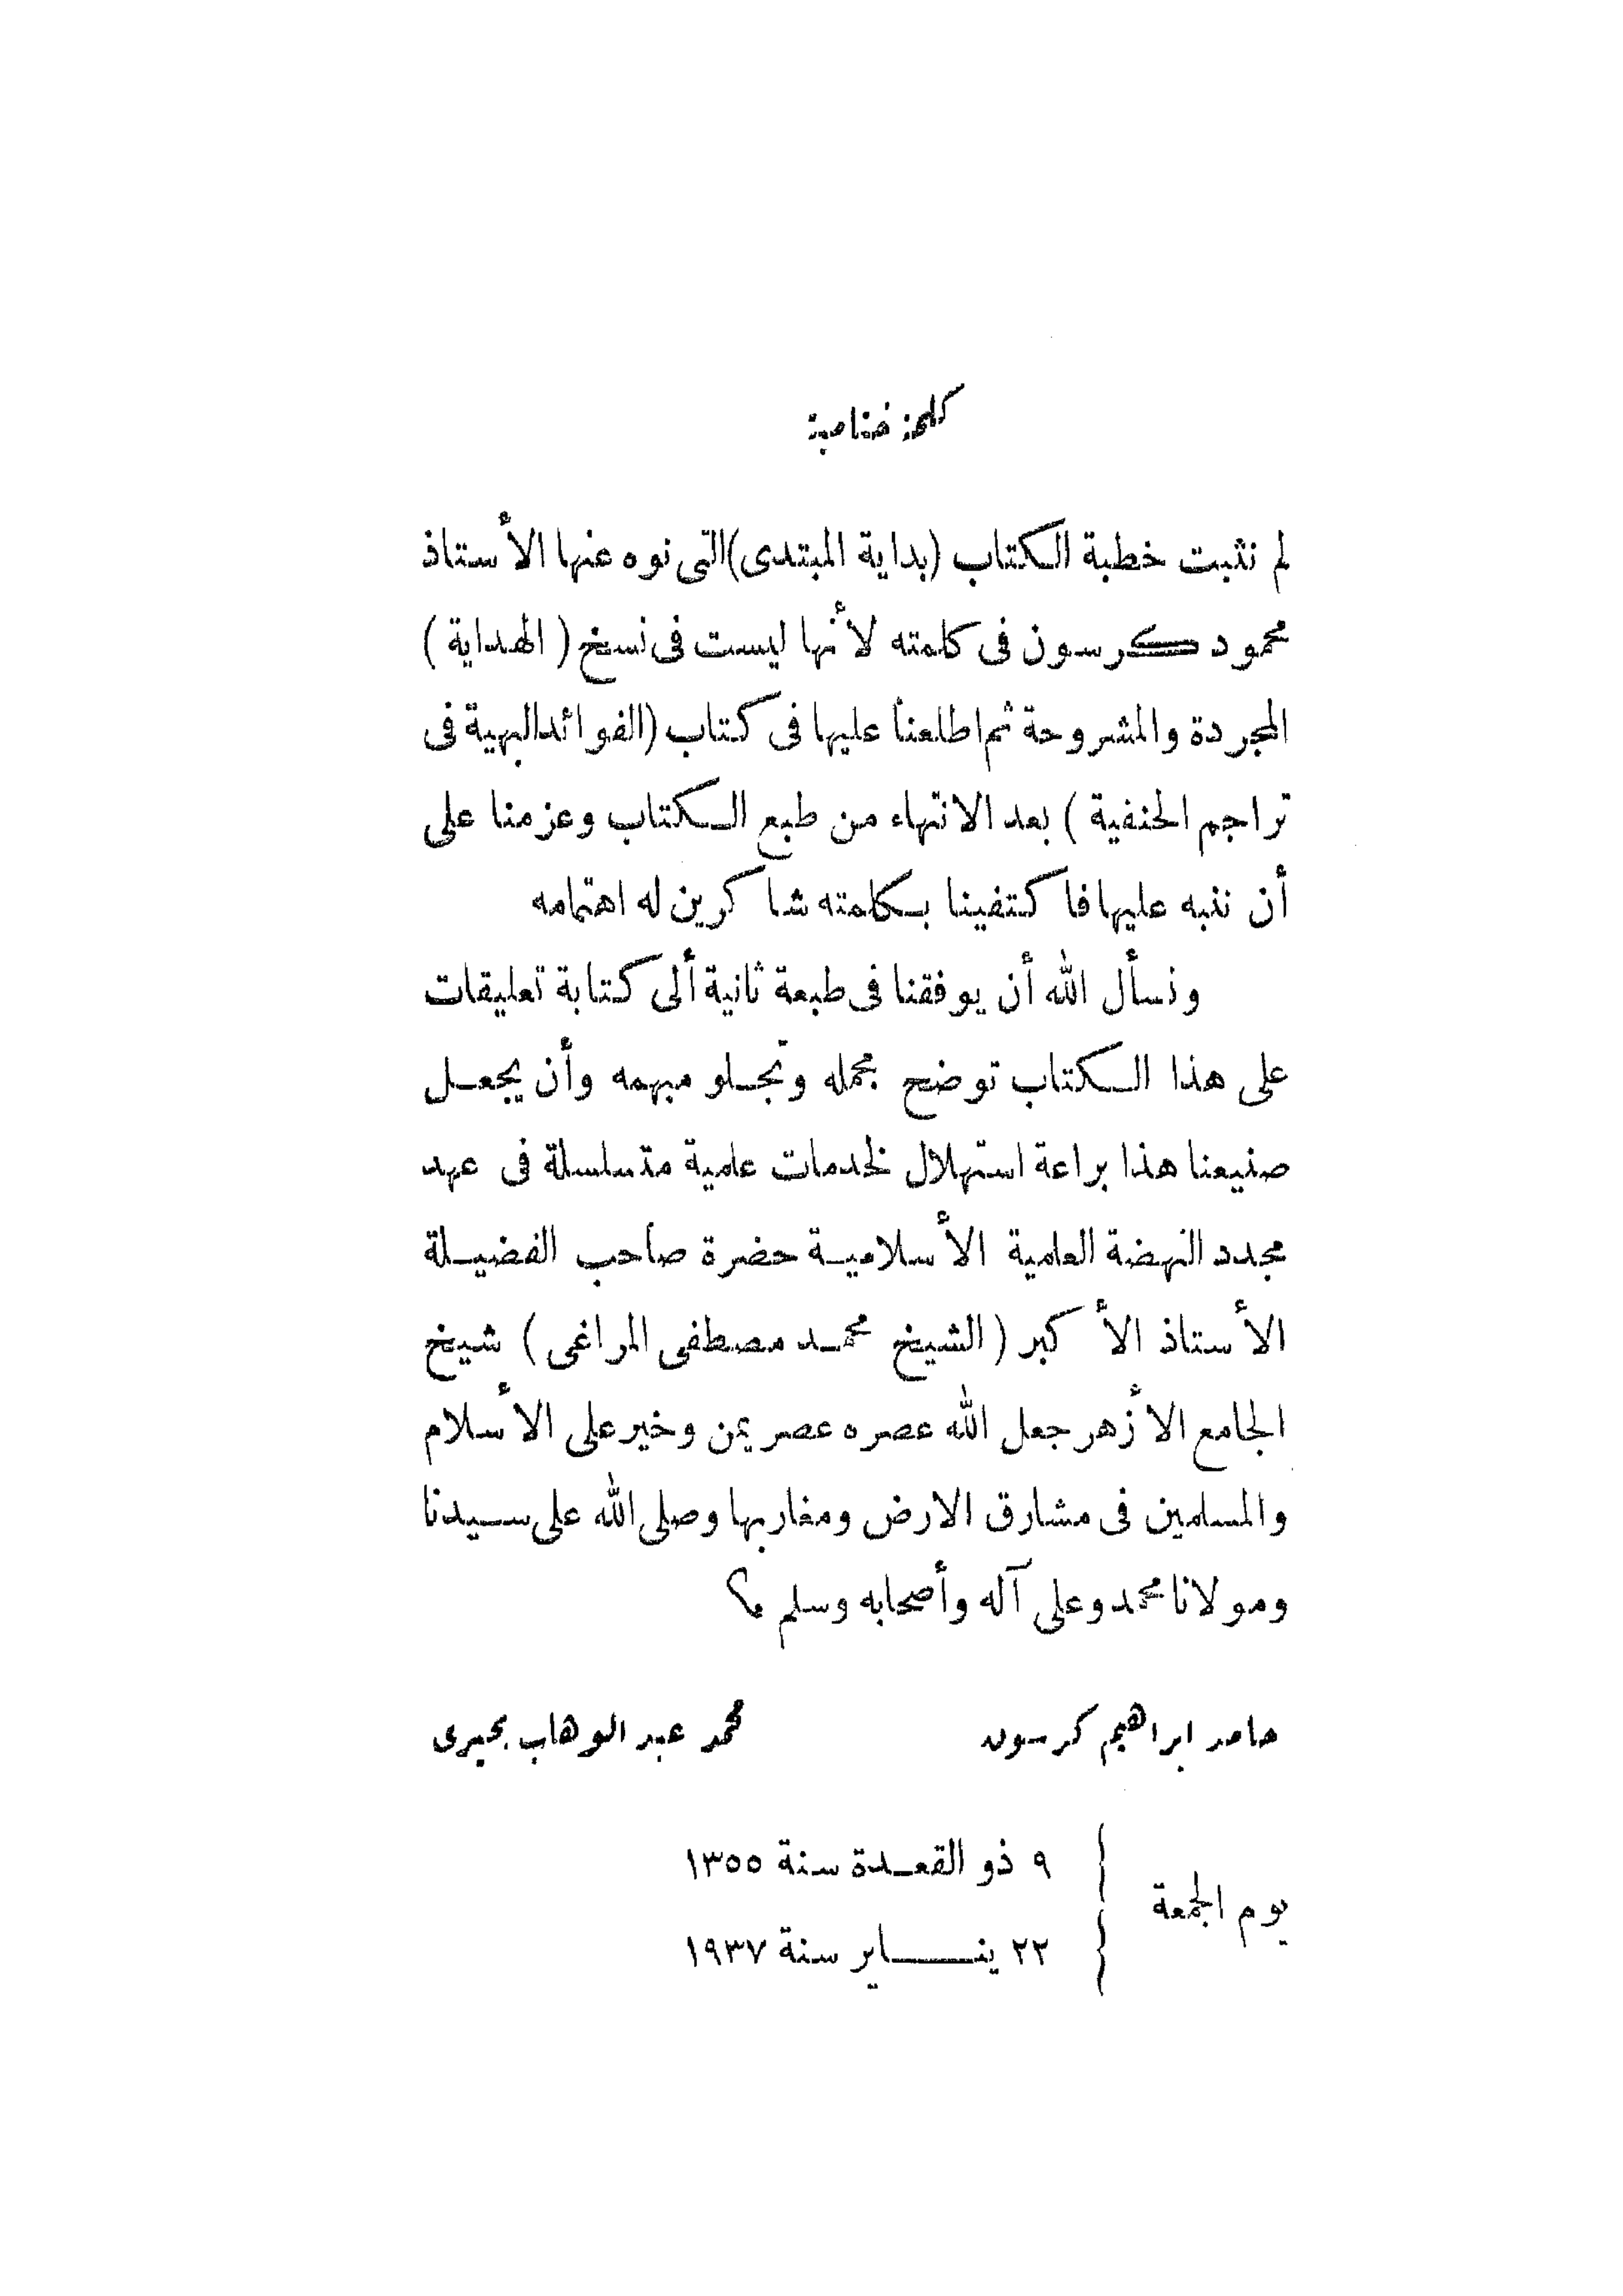 كلمة ختامية
لم نثبت خطبة الكتاب (بداية المبتدى) التى نوه عنها الأستاذ
محمود كرسون فى كلمته لأنها ليست فى نسخ ( الهداية )
المجردة والمشروحة ثم اطلعنا عليها فى كتاب (الفوائد البهية فى
تراجم الحنفية ) بعد الانتهاء من طبع الكتاب وعزمنا على
أن ننبه عليها فا كتفينا بكلمته شاكرين له اهتمامه
ونسأل الله أن يوفقنا فى طبعة ثانية ألى كتابة تعليقات
على هذا الكتاب توضح مجمله وتجلو مبهمه وأن يجعل
صنيعنا هذا براعة استهلال لخدمات علمية متسلسلة فى عهد
مجدد النهضة العلمية الأسلامية حضرة صاحب الفضيلة
الأستاذ الأكبر ( الشيخ محمد مصطفى المراغى ) شيخ
الجامع الأزهر جعل الله عصره عصر يمن وخير على الأسلام
والمسلمين فى مشارق الارض ومغاربها وصلى الله على سيدنا
ومولانا محمد وعلى آله وأصحابه وسلم
حامد ابراهيم كرسون محمد عبد الوهاب بحيرى
يوم الجمعة
٩ ذو القعدة سنة ١٣٥٥
٢٢ يناير سنة ١٩٣٧